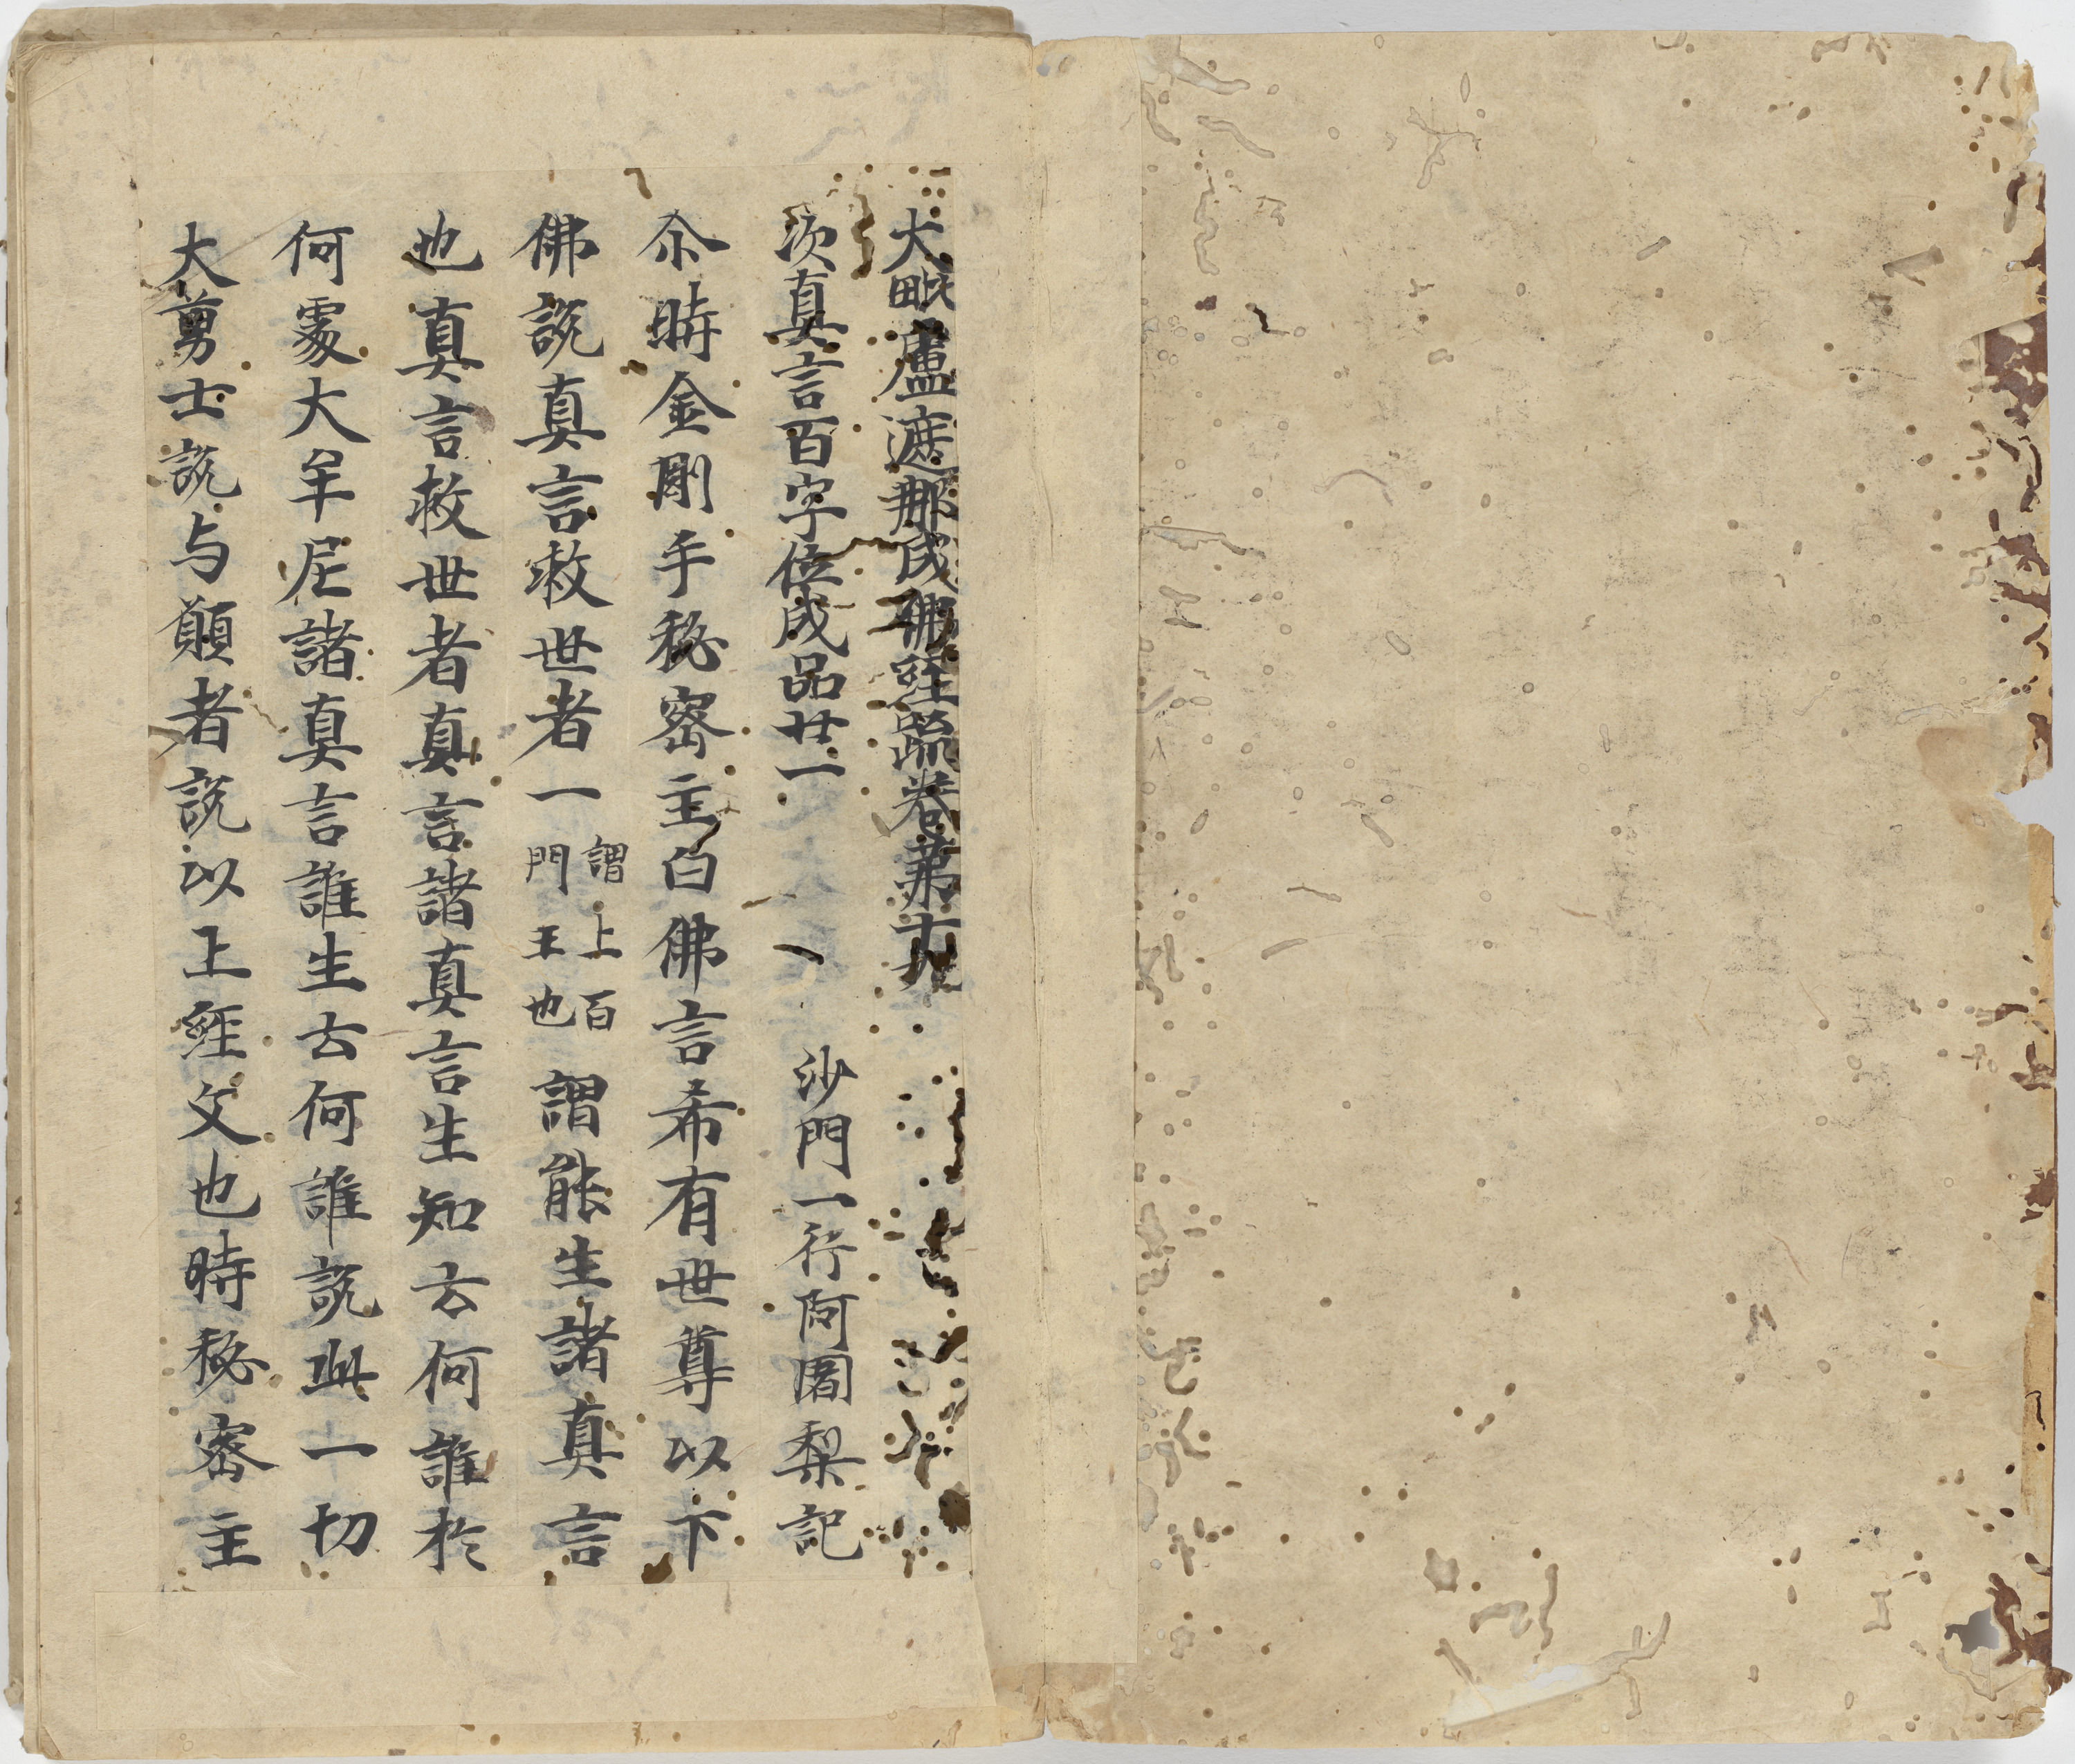 大毗盧遮那成佛経疏卷第十九
次真言百字位成品廿一　沙門一行阿闍梨記
尒時金剛手秘密主白佛言希有世尊以下
佛説真言救世者一謂上百門王也謂能生諸真言
也真言救世者真言諸真言生知云何誰於
何處大牟尼諸真言誰生云何誰説此一切
大勇士説与願者説以上経文也時秘密主